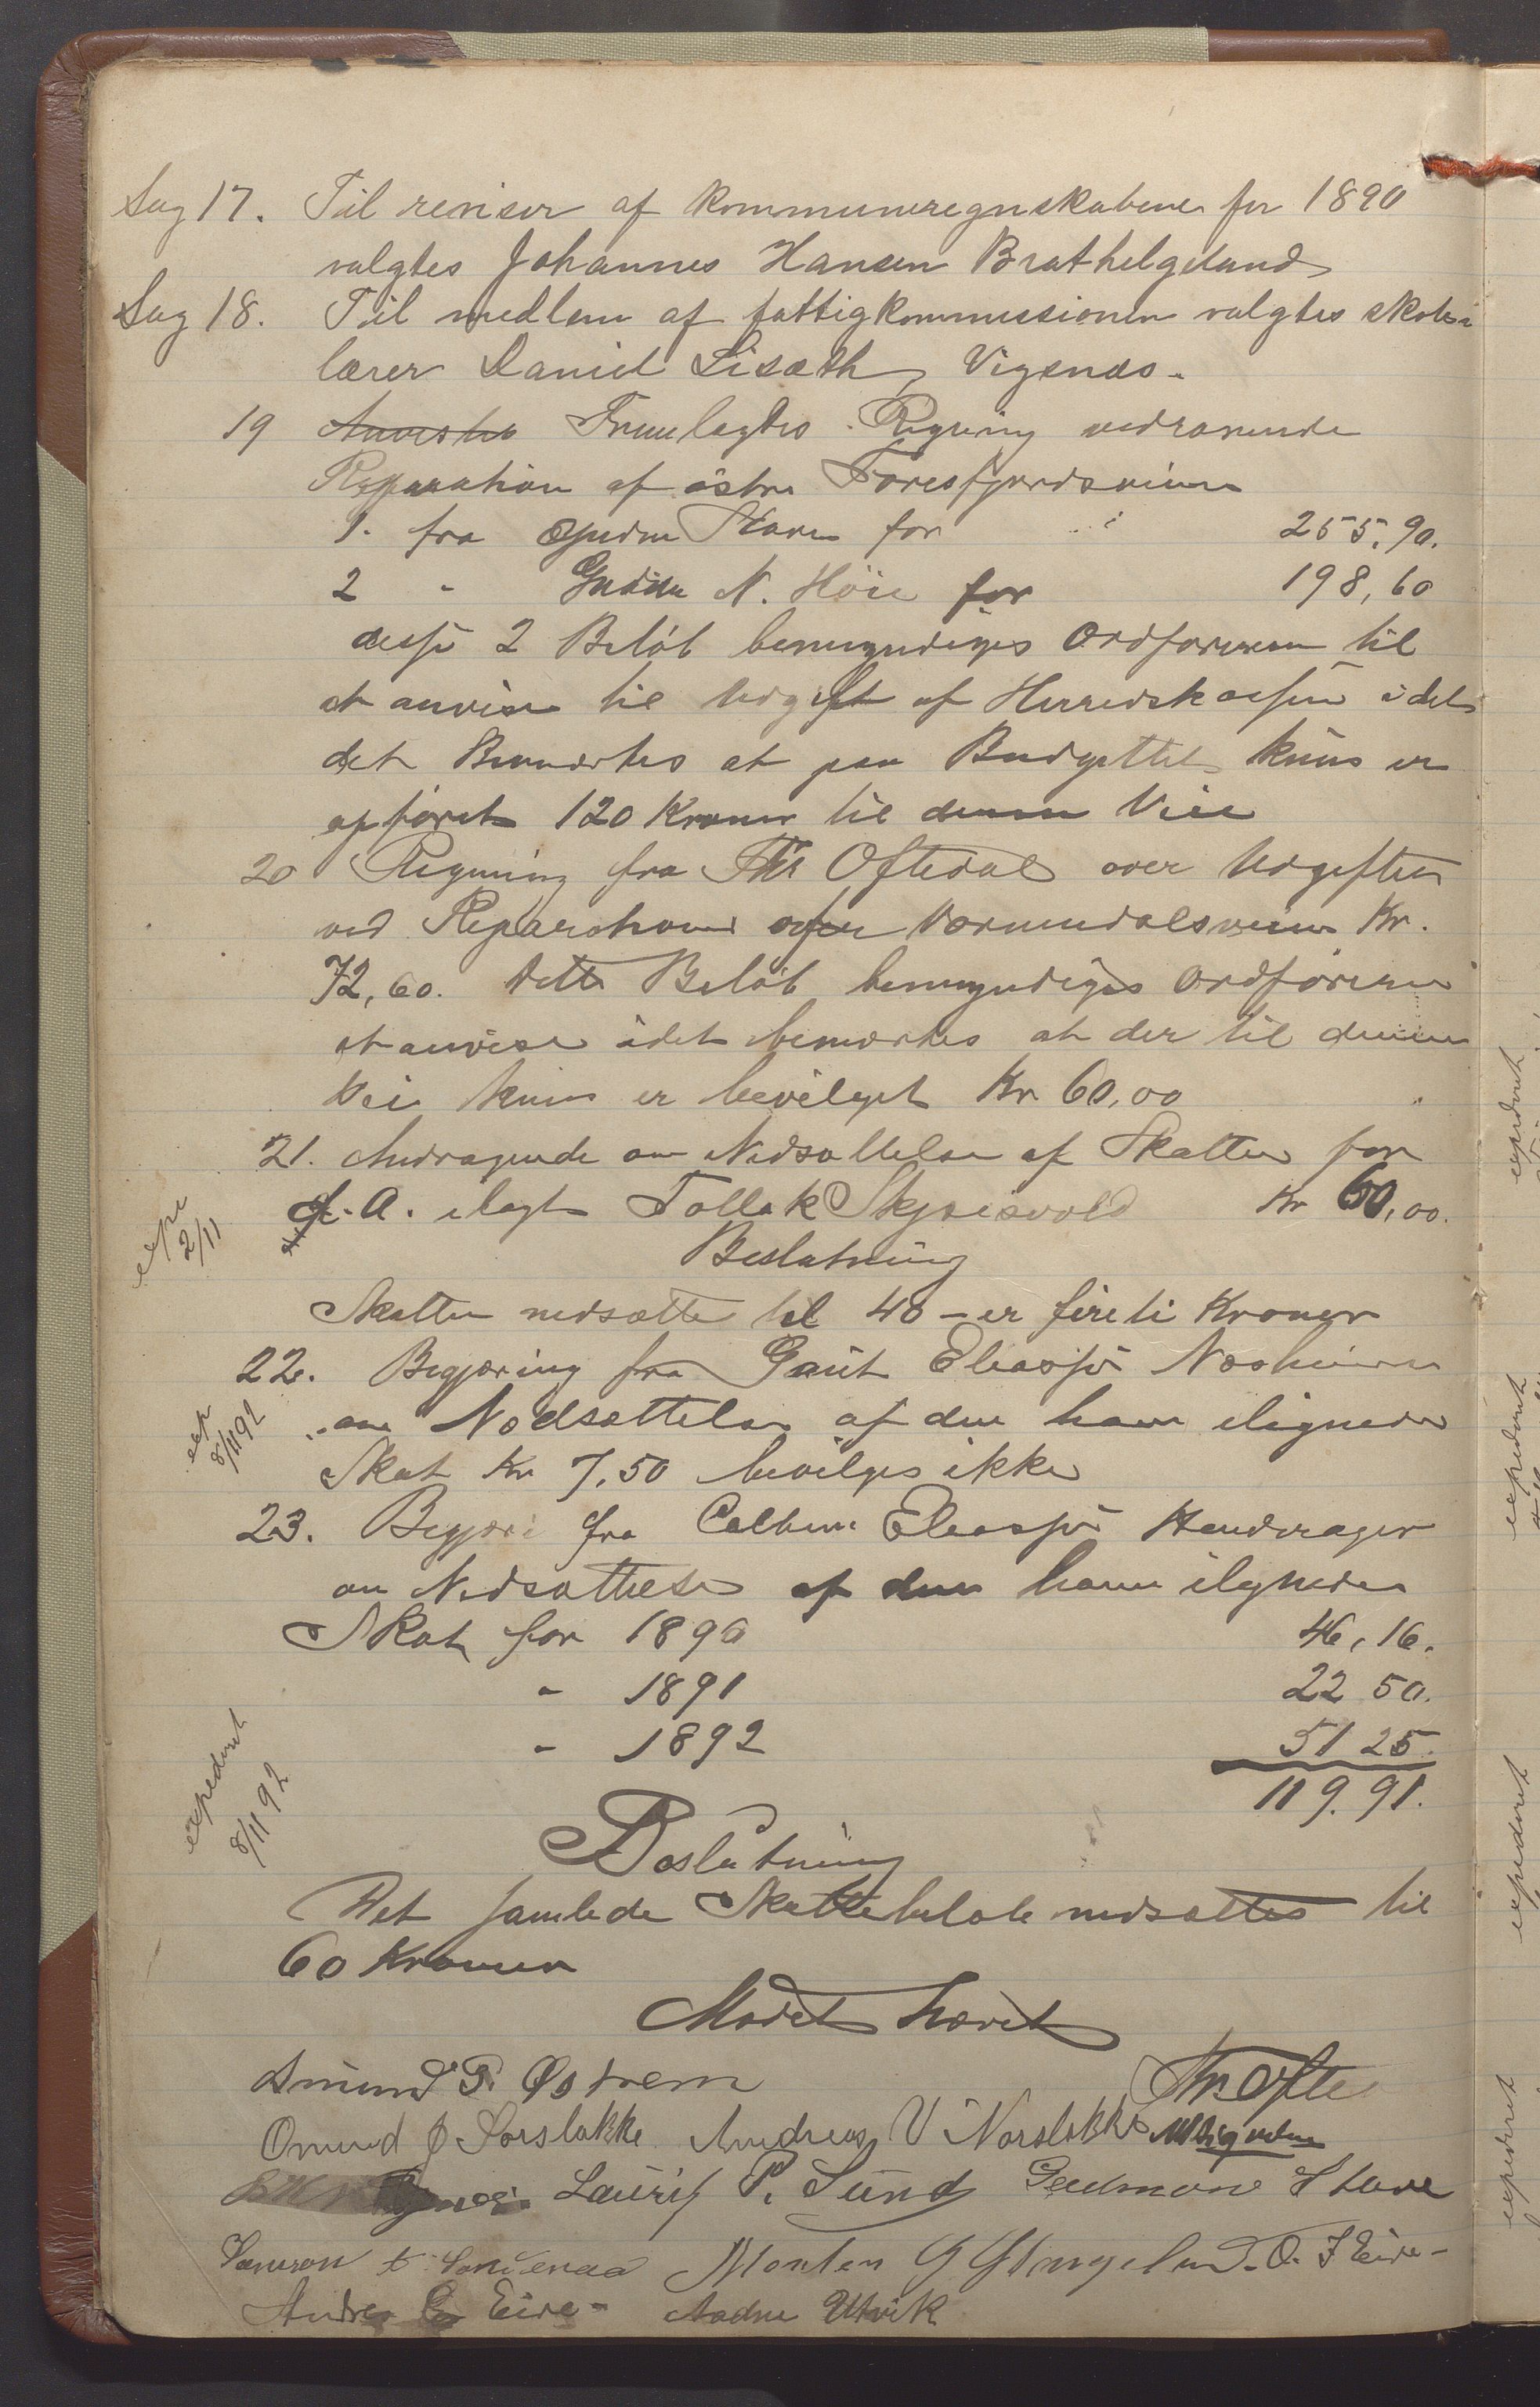 Sag 17. Til revisor af kommuneregnskabene for 1890
valgtes Johannes Hansen Brathelgeland
Sag 18. Til medlem af fattigkommissionen valgtes skole-
lærer Daniel Lisæth, Vigenæs.
19 Fremlagtes Regning vedrørende
Reparation af østre Førresfjordsveien
1. fra Stave for 255,90.
2 " N. Höie for 198,60
desse 2 Beløb bemyndiges Ordføreren til
at anvise til Udgift af Herredskassen idet
det Bemærkes at paa Budgettet kuns er
opføret 120 Kroner til denne Vei
20 Regning fra Thr Oftedal over Udgifter
ved Reparation Kr.
72,60. Dette Beløb bemyndiges Ordføreren
at anvise idet bemærkes at der til denne
Vei kuns er bevilget Kr 60,00
21. Andragende om Nedsættelse af Skatten for
d. A. ilagt Tollak Skjeisvold Kr 60,00.
exp 2/11
Beslutning
Skatten nedsætte til 40 - er fireti Kroner
22. Begjæring fra Gaut Eliassøn Næsheim
om Nedsættelse af den ham ilignede
exp 8/11 92
Skat Kr 7,50 bevilges ikke
23. Begjæri fra Eliassøn
om Nedsættelse af den ham ilignede
Skat for 1890 46,16.
" 1891 22 50.
" 1892 51 25.
119.91.
expederet 8/11 92
Beslutning
Det samlede Skattebeløb nedsættes til
60 Kroner
Mødet hævet
Amund P. Østrem Thr Ofte
Omund J Sørsløkke Andreas V Norsløkke
Lauritz P. Sund Gudmund Stave
Morten O. J Eide
Andreas Eide Aadne Utvik
expederet
expederet
expederet
expederet